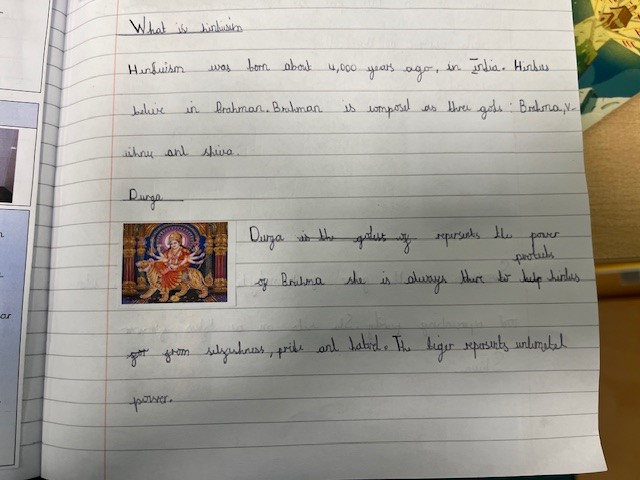 What is hinduism
Hinduism was born about 4,000 years ago, in India. Hindus
belive in Brahman. Brahman is composed as three gods: Brahma, v-
ishnu and shiva.
Durga
Durga is the godest of represents the power
protects
of Brahma she is always there to help hindus
for from selfeshness, pride and hatred. The tiger represents unlimeted
power.